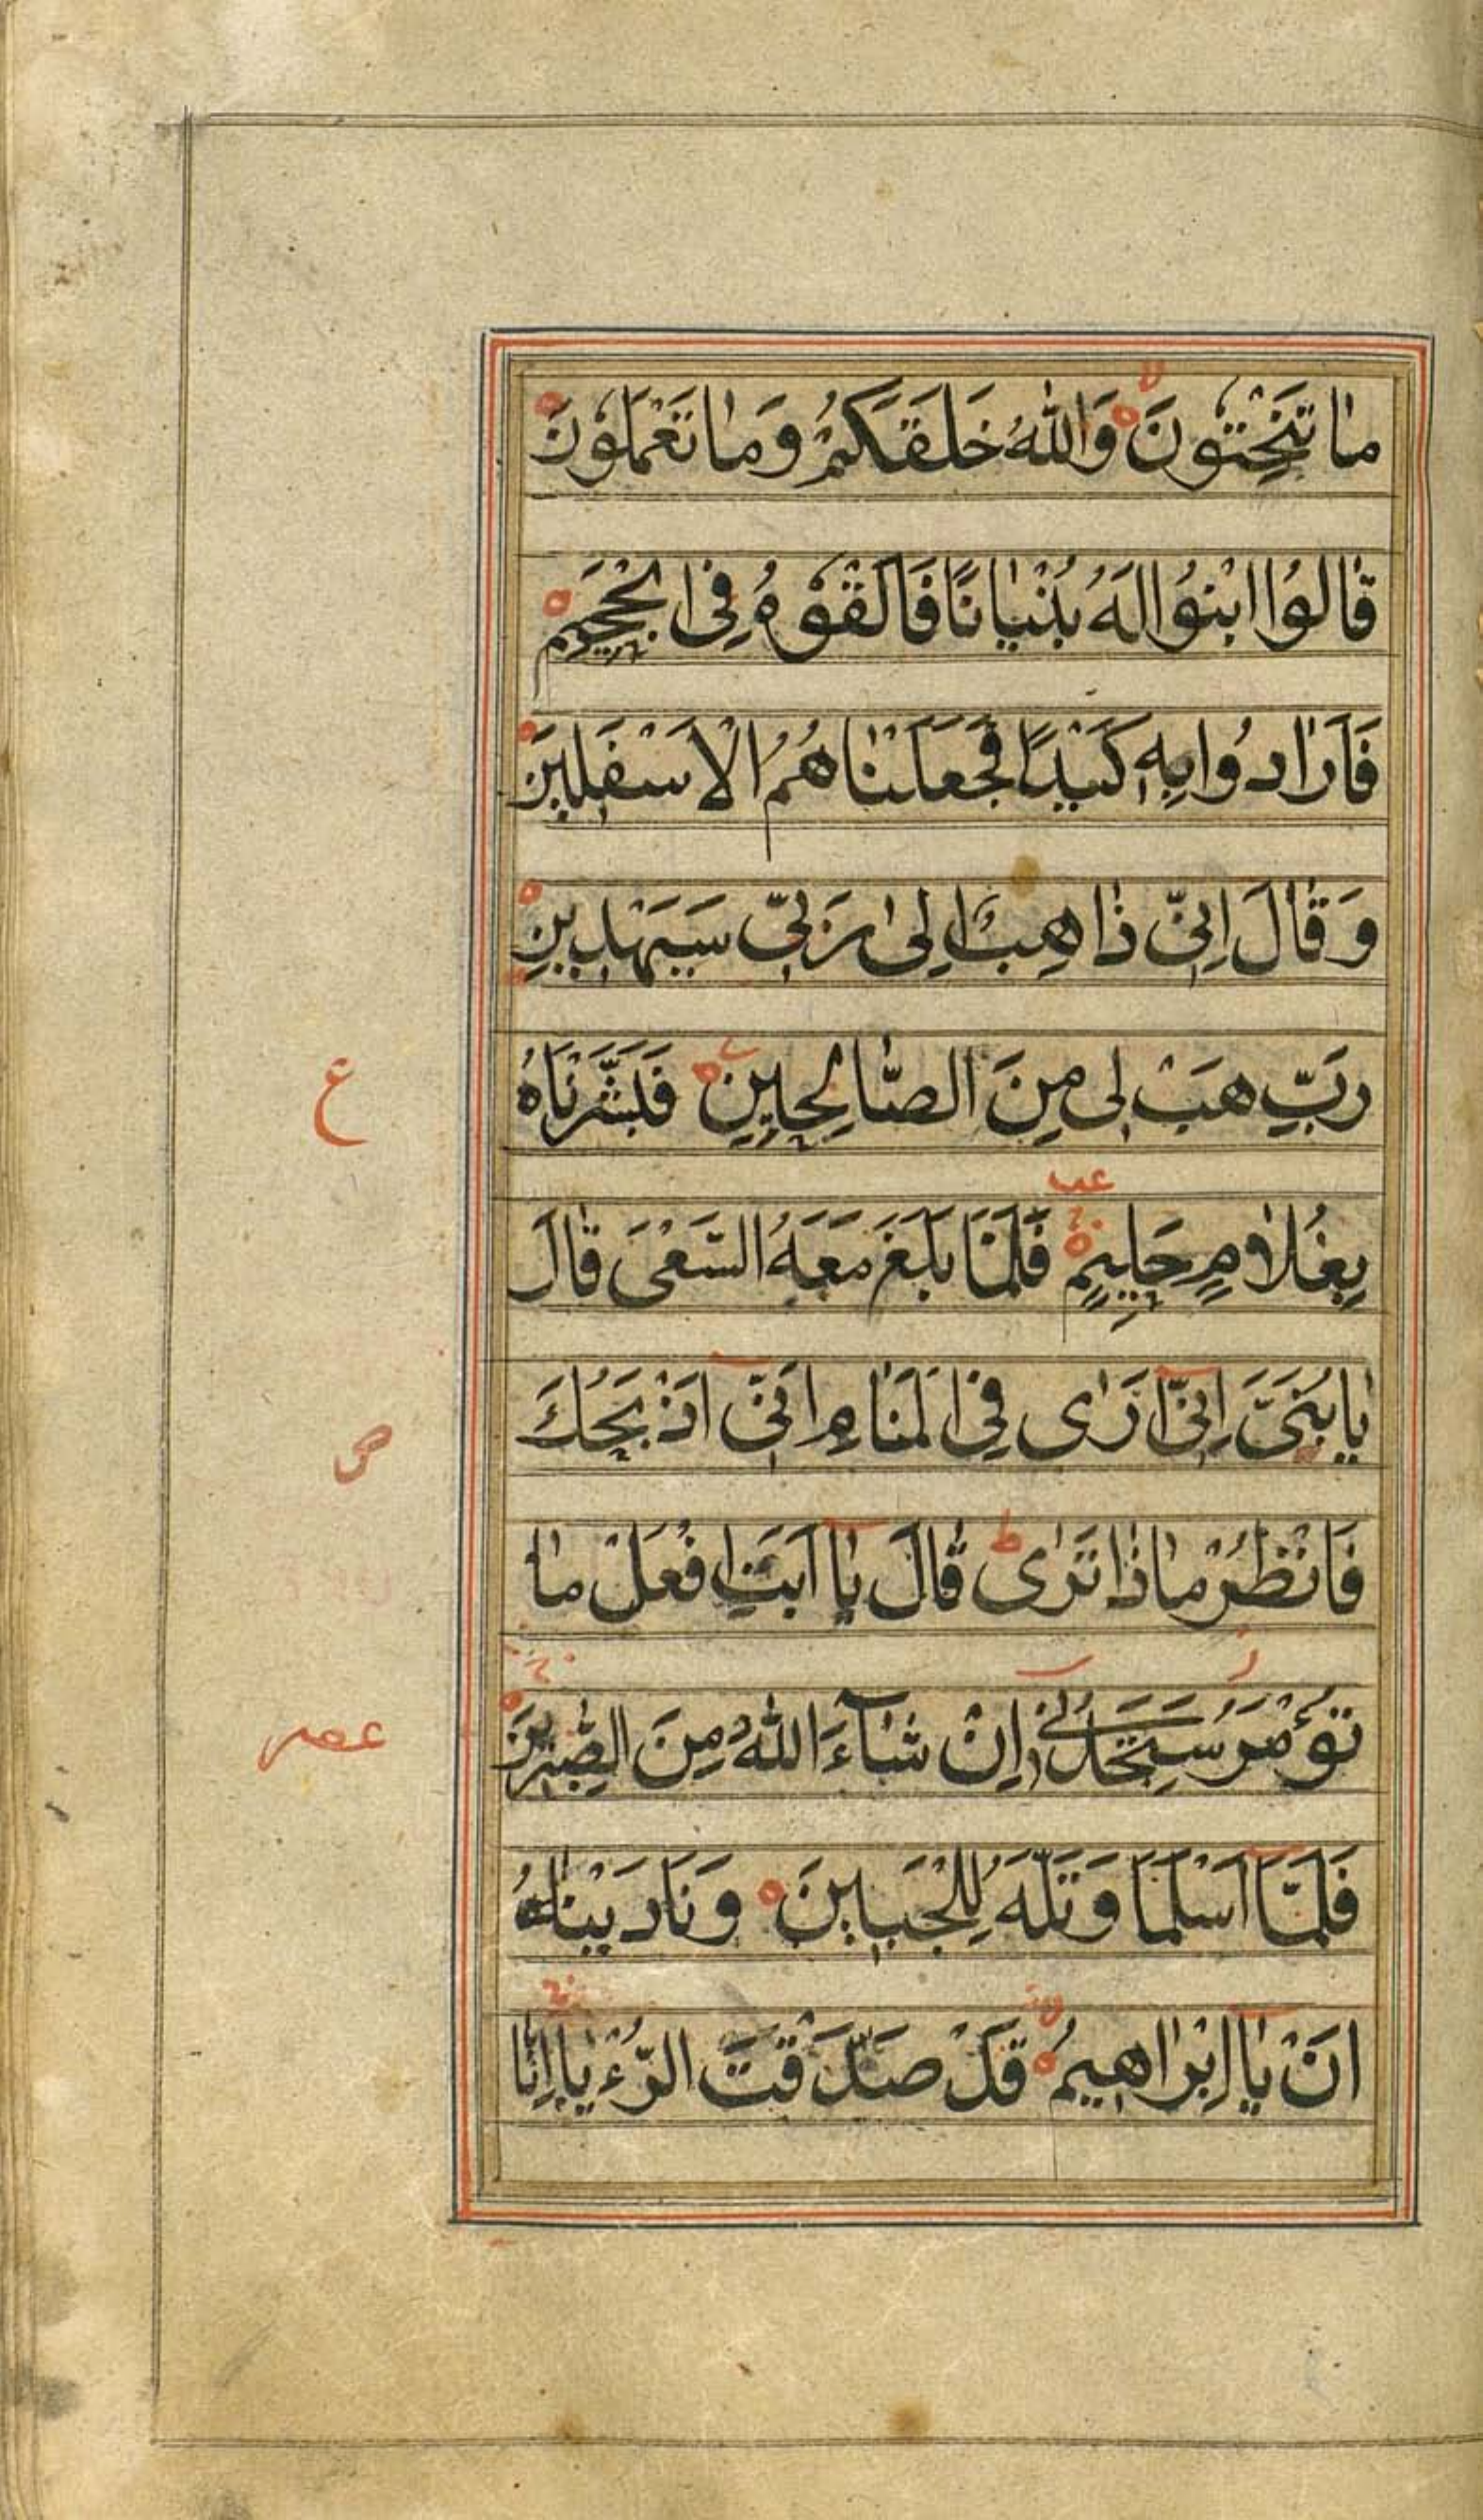 مَا تَنْحِتُونَ وَاللّٰهُ خَلَقَكُمْ وَمَا تَعْمَلُونَ
قَالُوا ابْنُوا لَهُ بُنْيَانًا فَاَلْقُوْهُ فِى الْجَحِيمِ
فَاَرَادُوا بِهِ كَيْدًا فَجَعَلْنَاهُمُ الْاَسْفَلِينَ
وَقَالَ اِنِّى ذَاهِبٌ اِلٰى رَبِّى سَيَهْدِينِ
رَبِّ هَبْ لِى مِنَ الصَّالِحِينَ فَبَشَّرْنَاهُ
بِغُلَامٍ حَلِيمٍ فَلَمَّا بَلَغَ مَعَهُ السَّعْىَ قَالَ
يَا بُنَىَّ اِنِّى اَرٰى فِى الْمَنَامِ اَنِّى اَذْبَحُكَ
فَانْظُرْ مَاذَا تَرٰى قَالَ يَا اَبَتِ افْعَلْ مَا
تُؤْمَرُ سَتَجِدُنِى اِنْ شَآءَ اللّٰهُ مِنَ الصّٰبِرِينَ
فَلَمَّا اَسْلَمَا وَتَلَّهُ لِلْجَبِينِ وَنَادَيْنَاهُ
اَنْ يَا اِبْرَاهِيمُ قَدْ صَدَّقْتَ الرُّءْيَا اِنَّا
ع